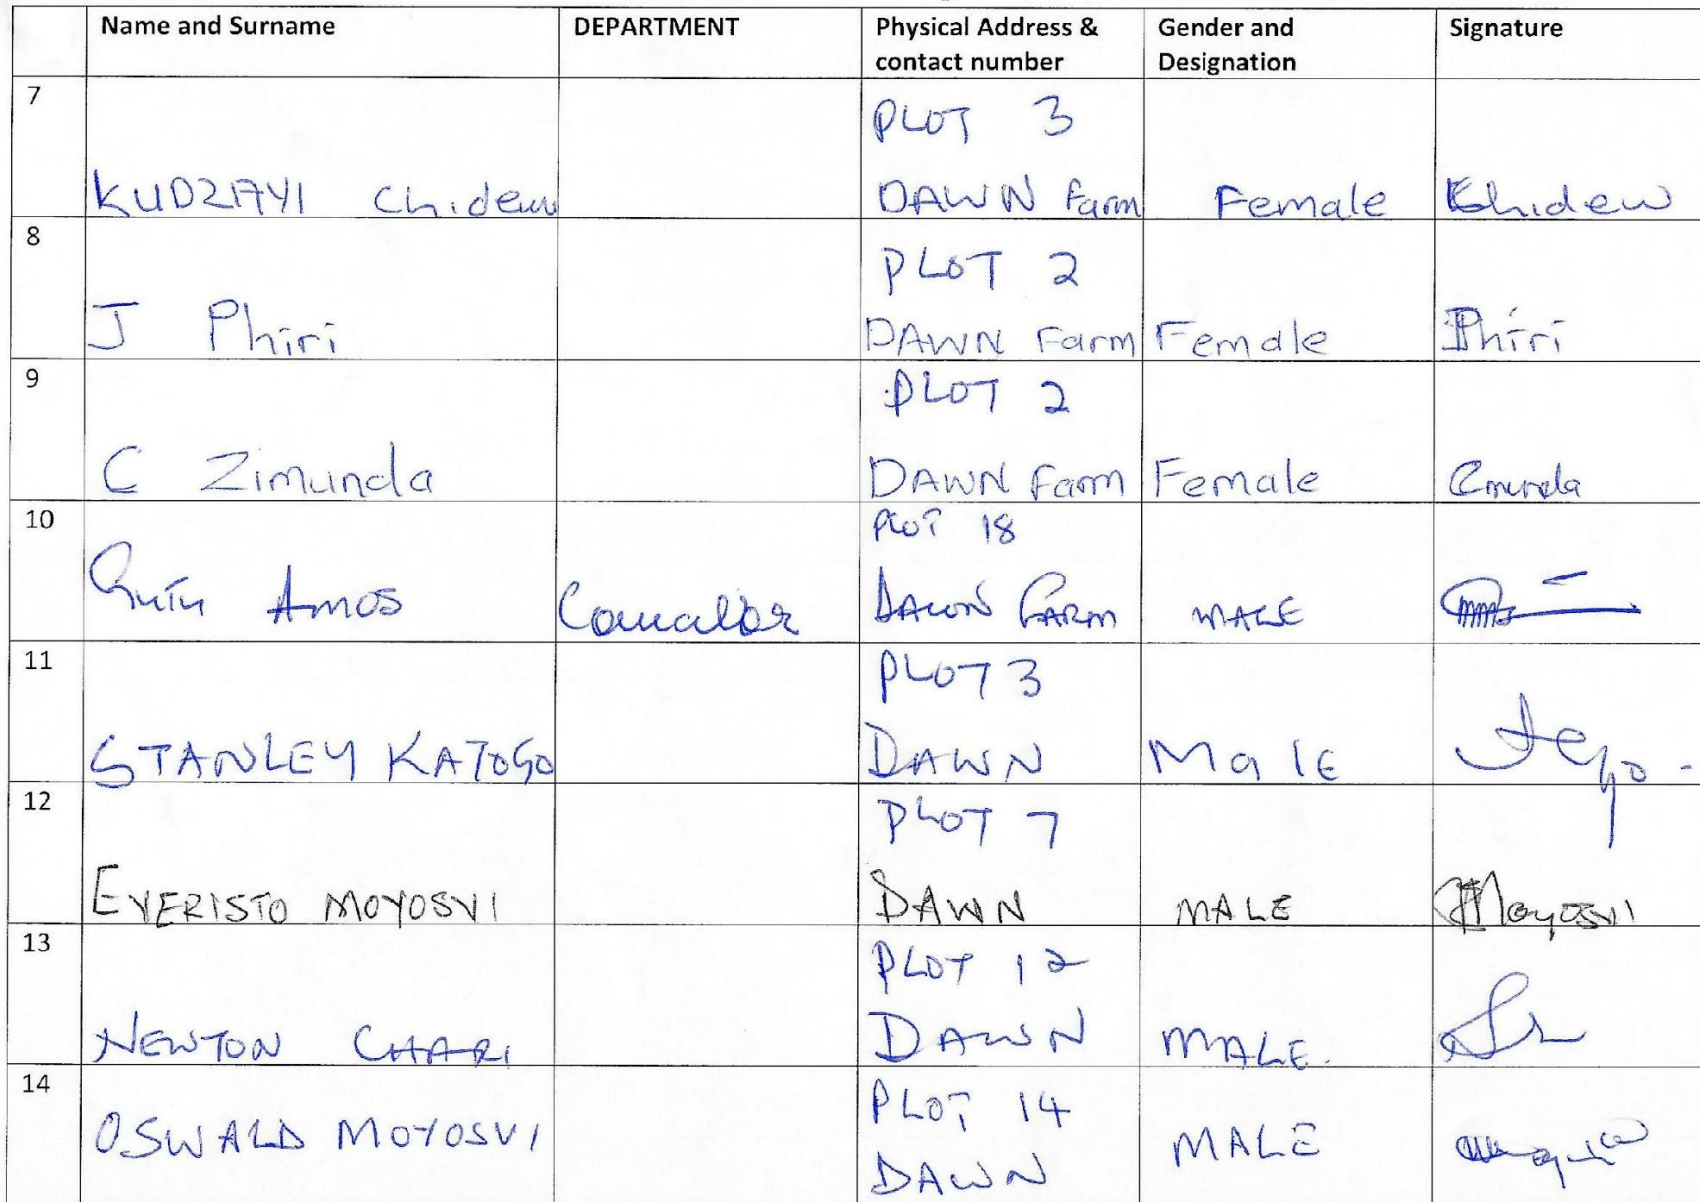 Name and Surname DEPARTMENT Physical Address & contact number Gender and Designation Signature
7 KUDZAYI Chidewu PLOT 3 DAWN Farm Female Chidew
8 J Phiri PLOT 2 DAWN Farm Female Phiri
9 C Zimunda PLOT 2 DAWN Farm Female
10 Amos PLOT 18 DAWN FARM MALE
11 STANLEY KATOGO PLOT 3 DAWN Male
12 EVERISTO MOYOSVI PLOT 7 DAWN MALE Moyosvi
13 NEWTON CHARI PLOT 12 DAWN MALE.
14 OSWALD MOYOSVI PLOT 14 DAWN MALE